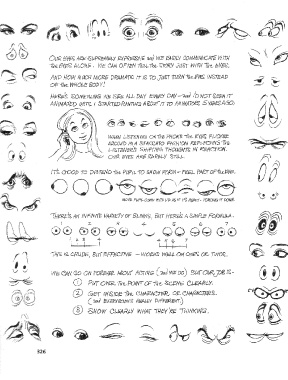 OUR EYES ARE SUPREMELY EXPRESSIVE and WE RARELY COMMUNICATE WITH
the EYES ALONE. WE CAN OFTEN TELL THE STORY JUST WITH THE EYES.
AND HOW MUCH MORE DRAMATIC IT IS TO JUST TURN the EYES INSTEAD
OF the WHOLE BODY!
HERE'S SOMETHING WE SEE ALL DAY EVERY DAY – and I'D NOT SEEN IT
ANIMATED UNTIL I STARTED POINTING ABOUT IT TO ANIMATORS YEARS AGO.
WHEN LISTENING ON the PHONE THE EYES
AROUND IN A STACCATO FASHION REFLECTING THE
LISTENER'S SHIFTING THOUGHTS IN REACTION.
OUR EYES ARE RARELY STILL.
IT'S GOOD TO the PUPIL TO SHOW FORM – FEEL PART OF the
THERE'S AN INFINITE VARIETY OF BLINKS, BUT HERE'S A SIMPLE FORMULA.
THIS IS CRUDE, BUT EFFECTIVE – WORKS WELL ON ONES OR TWOS.
WE CAN GO ON FOREVER ABOUT ACTING (and WE DO) BUT OUR JOB IS –
1 PUT OVER the POINT OF the SCENE CLEARLY.
2 GET INSIDE the CHARACTER OR CHARACTERS.
(and EVERYONE'S REALLY DIFFERENT)
3 SHOW CLEARLY WHAT THEY'RE THINKING.
326